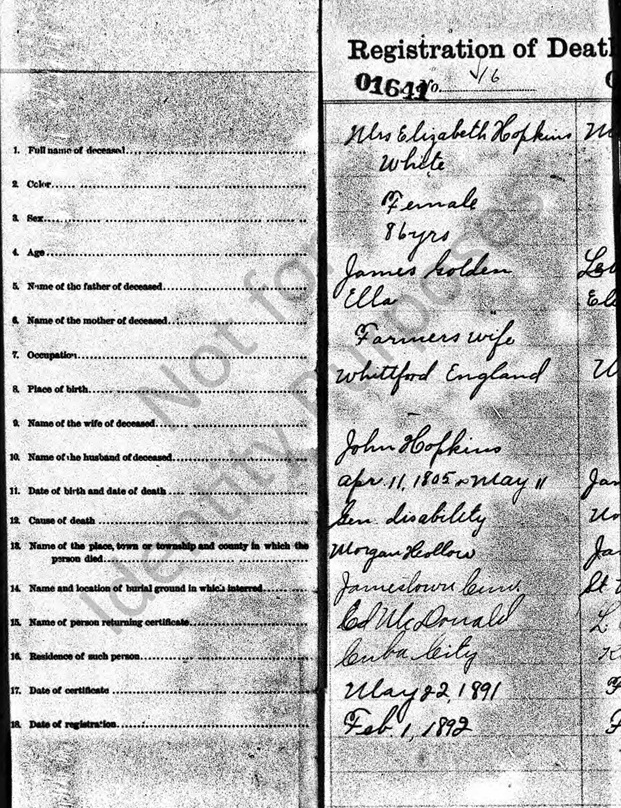 Registration of Deat
01641 No. 16
1. Full name of deceased Mrs Elizabeth Hopkins
2. Color White
3. Sex Female
4. Age 86 yrs
5. Name of the father of deceased James Golden
6. Name of the mother of deceased Ella
7. Occupation Farmers wife
8. Place of birth Whittford England
9. Name of the wife of deceased
10. Name of the husband of deceased John Hopkins
11. Date of birth and date of death Apr. 11, 1805 May 11
12. Cause of death Gen. disability
13. Name of the place, town or township and county in which the
person died Morgan Hollow
14. Name and location of burial ground in which interred Jamestown
15. Name of person returning certificate Ed McDonald
16. Residence of such person Cuba City
17. Date of certificate May 22, 1891
18. Date of registration Feb. 1, 1892
Not for
Identity Purposes